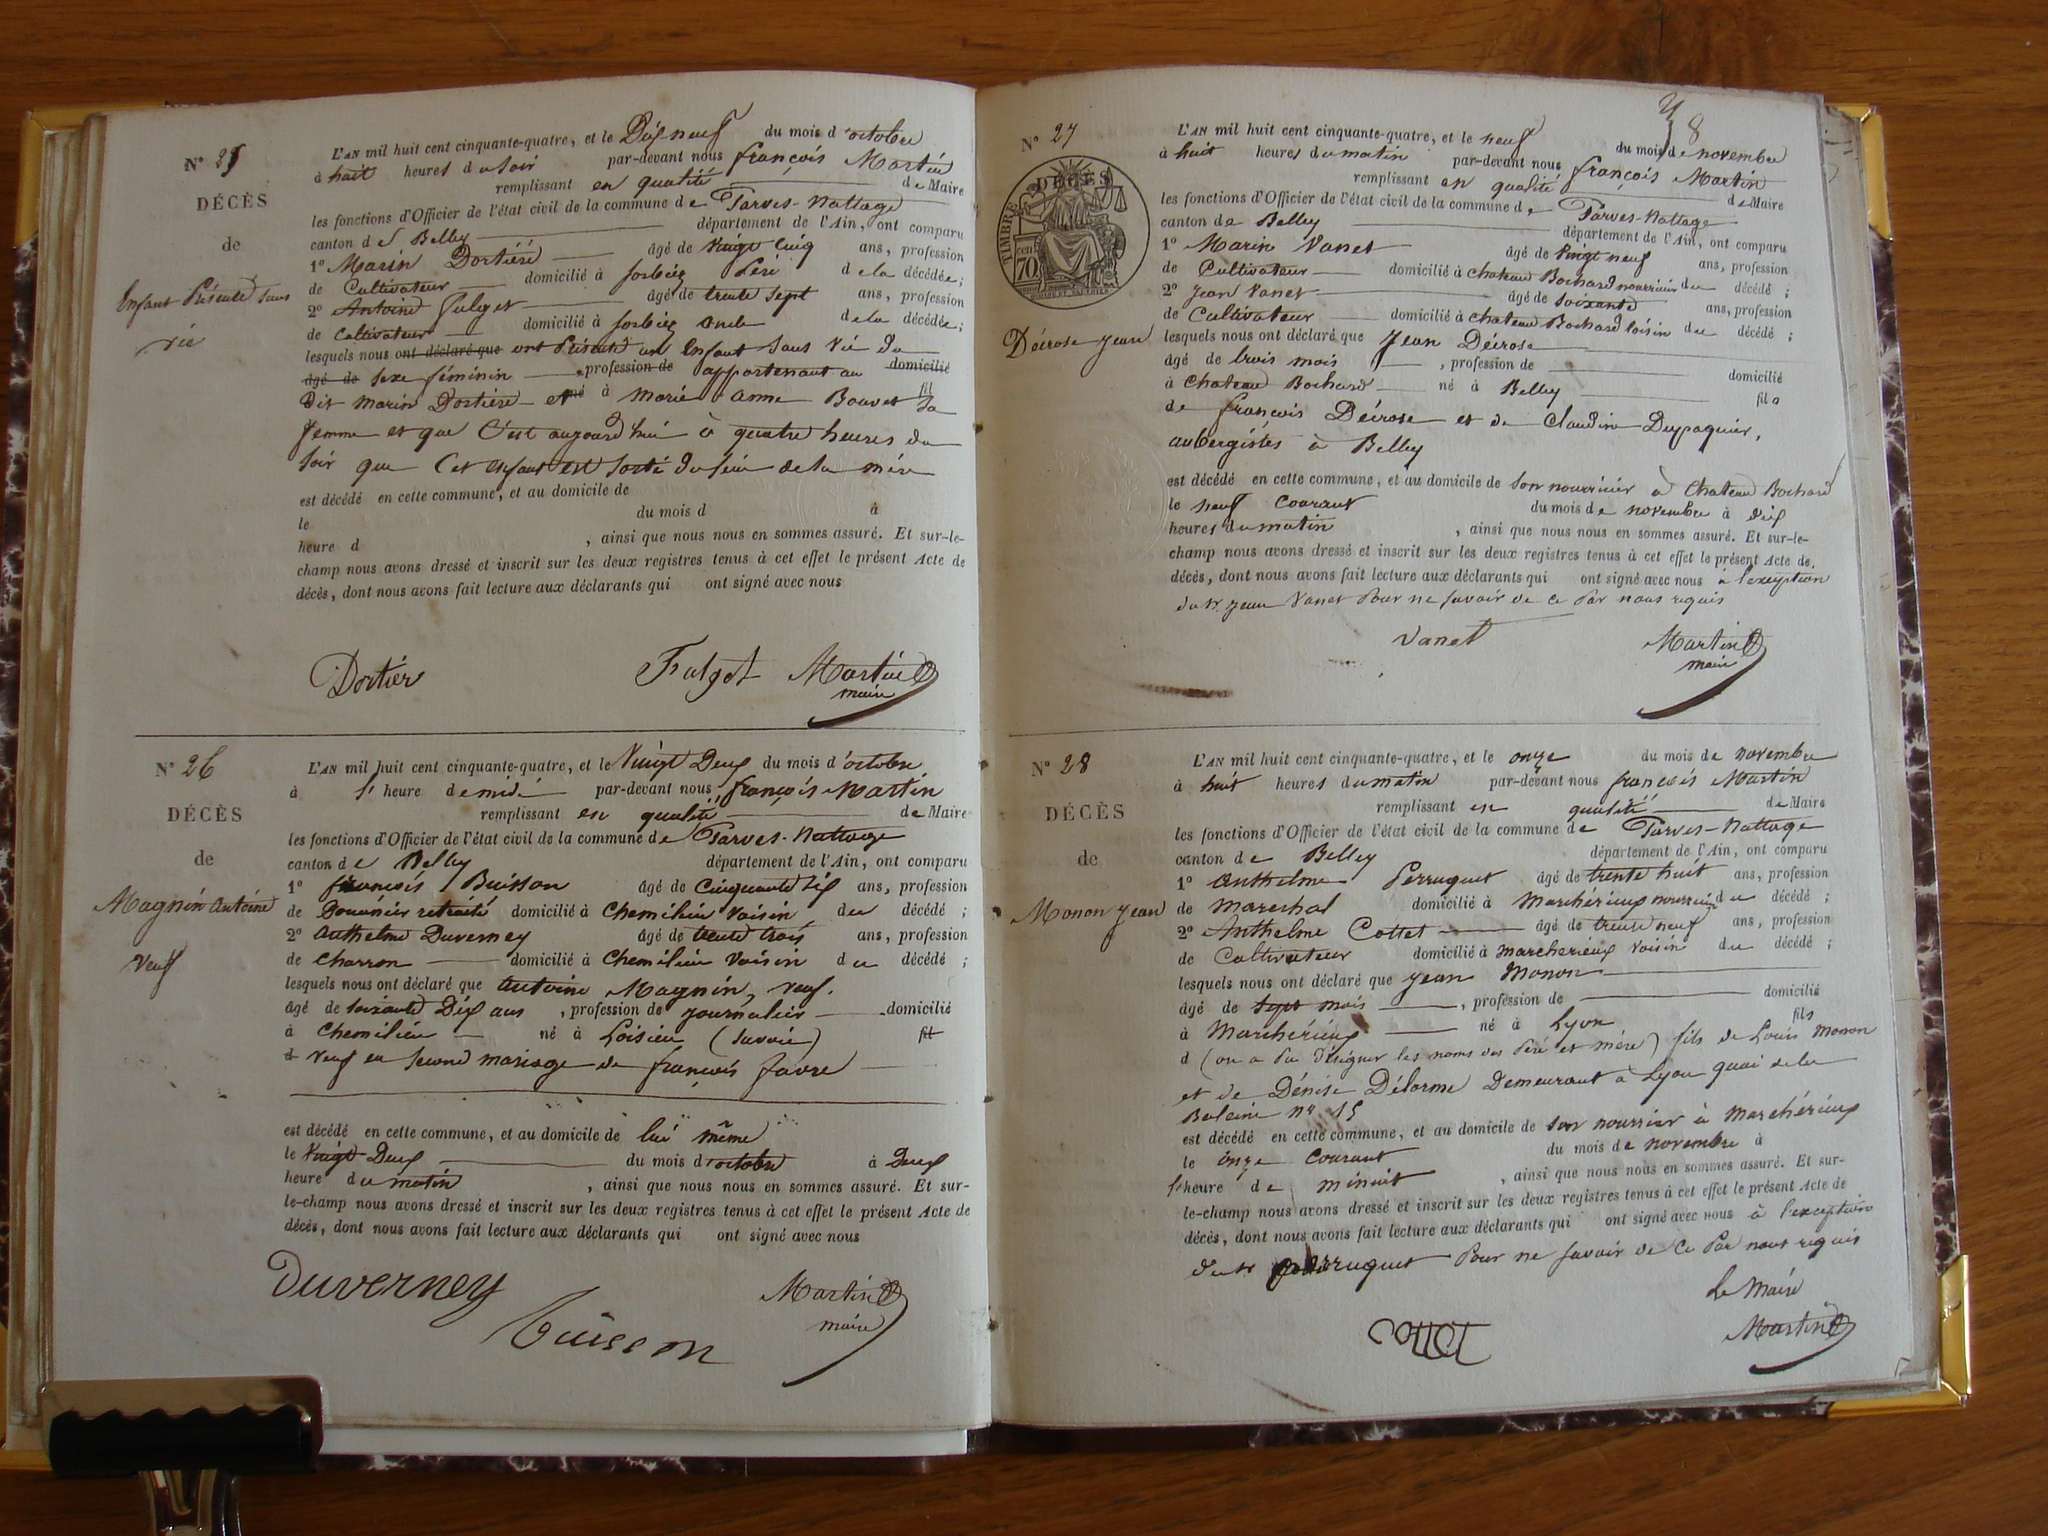 N° 25
DÉCÈS
de
Enfant Présenté sans
vie
L'AN mil huit cent cinquante-quatre, et le Dix neuf du mois d'octobre
à huit heures du soir par-devant nous françois Martin
remplissant en qualité de Maire
les fonctions d'Officier de l'état civil de la commune de Parves-Nattage
canton de Belley département de l'Ain, ont comparu
1° Marin Dortier âgé de vingt cinq ans, profession
de Cultivateur domicilié à Sorbiez Péré de la décédée;
2° Antoine Falget âgé de trente sept ans, profession
de Cultivateur domicilié à Sorbiez oncle de la décédée;
lesquels nous ont déclaré que ont Présenté un Enfant sans vie du
âgé de sexe féminin profession de appartenant au domicilié
Dit Marin Dortier et né à Marie Anne Bouvet fil sa
femme et que C'est aujourd'hui à quatre heures du
soir que Cet enfant est sorti du sein de la mère
est décédé en cette commune, et au domicile de
le du mois d à
heure d , ainsi que nous nous en sommes assuré. Et sur-le-
champ nous avons dressé et inscrit sur les deux registres tenus à cet effet le présent Acte de
décès, dont nous avons fait lecture aux déclarants qui ont signé avec nous
Dortier Falget Martin
maire
N° 26
DÉCÈS
de
Magnin Antoine
Veuf
L'AN mil huit cent cinquante-quatre, et le Vingt Deux du mois d'octobre
à l' heure de midi par-devant nous françois Martin
remplissant en qualité de Maire
les fonctions d'Officier de l'état civil de la commune de Parves-Nattage
canton de Belley département de l'Ain, ont comparu
1° françois Buisson âgé de Cinquante six ans, profession
de Douanier retraité domicilié à Chemilieu voisin du décédé ;
2° Anthelme Duverney âgé de trente trois ans, profession
de Charron domicilié à Chemilieu voisin du décédé ;
lesquels nous ont déclaré que Antoine Magnin, veuf.
âgé de soixante Dix ans , profession de journalier domicilié
à Chemilieu né à Loisieu (Savoie) fil
d veuf en second mariage de françois favre
est décédé en cette commune, et au domicile de lui même
le Vingt Deux du mois d'octobre à Deux
heure du matin , ainsi que nous nous en sommes assuré. Et sur-
le-champ nous avons dressé et inscrit sur les deux registres tenus à cet effet le présent Acte de
décès, dont nous avons fait lecture aux déclarants qui ont signé avec nous
Duverney
Buisson
Martin
maire
8
N° 27
TIMBRE
DÉCÈS
70
Décrose Jean
L'AN mil huit cent cinquante-quatre, et le neuf du mois de novembre
à huit heures du matin par-devant nous françois Martin
remplissant en qualité de Maire
les fonctions d'Officier de l'état civil de la commune de Parves-Nattage
canton de Belley département de l'Ain, ont comparu
1° Marin Vanet âgé de vingt neuf ans, profession
de Cultivateur domicilié à chateau Bochard nourricier du décédé ;
2° Jean Vanet âgé de soixante ans, profession
de Cultivateur domicilié à chateau Bochard voisin du décédé ;
lesquels nous ont déclaré que Jean Décrose
âgé de trois mois , profession de domicilié
à Chateau Bochard né à Belley fils
de françois Décrose et de Claudine Dupaquier,
aubergistes à Belley
est décédé en cette commune, et au domicile de son nourricier à Chateau Bochard
le neuf courant du mois de novembre à dix
heures du matin , ainsi que nous nous en sommes assuré. Et sur-le-
champ nous avons dressé et inscrit sur les deux registres tenus à cet effet le présent Acte de
décès, dont nous avons fait lecture aux déclarants qui ont signé avec nous à l'exception
du sr. Jean Vanet Pour ne savoir de ce Par nous requis
Vanet Martin
maire
N° 28
DÉCÈS
de
Monon Jean
L'AN mil huit cent cinquante-quatre, et le onze du mois de novembre
à huit heures du matin par-devant nous françois Martin
remplissant en qualité de Maire
les fonctions d'Officier de l'état civil de la commune de Parves-Nattage
canton de Belley département de l'Ain, ont comparu
1° Anthelme Perruquet âgé de trente huit ans, profession
de Marechal domicilié à Marchérieux nourricier du décédé ;
2° Anthelme Cottet âgé de trente neuf ans, profession
de Cultivateur domicilié à marcherieux voisin du décédé ;
lesquels nous ont déclaré que Jean Monon
âgé de sept mois , profession de domicilié
à Marchérieux né à Lyon fils
d (on a pu désigner les noms des Péré et mère) fils de Louis Monon
et de Dénise Délorme Demeurant à Lyon quai de la
Baleine n° 15
est décédé en cette commune, et au domicile de son nourricier à Marchérieux
le onze courant du mois de novembre à
l'heure de minuit , ainsi que nous nous en sommes assuré. Et sur-
le-champ nous avons dressé et inscrit sur les deux registres tenus à cet effet le présent Acte de
décès, dont nous avons fait lecture aux déclarants qui ont signé avec nous à l'exception
du sr Perruquet Pour ne savoir de ce Par nous requis
Le Maire
Martin